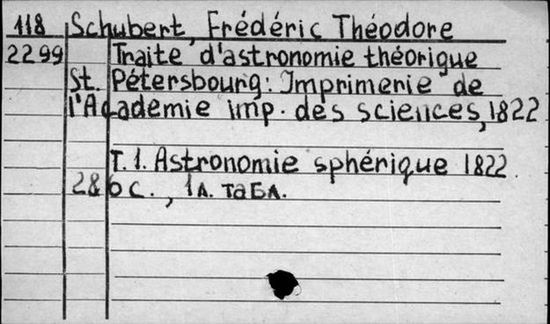 118 Schubert, Frédéric Théodore
2299 Traite d'astronomie théorique
St. Pétersbourg: Imprimerie de
l'Académie imp. des sciences, 1822
T. 1. Astronomie sphérique 1822.
286 с., 1 л. табл.